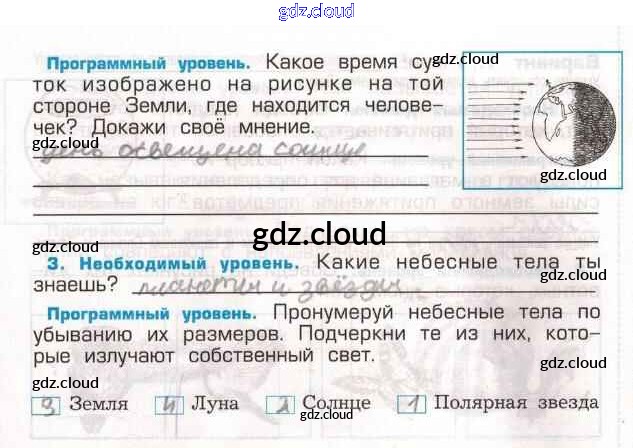 gdz.cloud
Программный уровень. Какое время су-
ток изображено на рисунке на той
стороне Земли, где находится челове-
чек? Докажи своё мнение.
gdz.cloud
gdz.cloud
день освещена солнце
gdz.cloud
gdz.cloud
gdz.cloud
gdz.cloud
3. Необходимый уровень. Какие небесные тела ты
знаешь? планеты и звёзды
gdz.cloud
gdz.cloud
Программный уровень. Пронумеруй небесные тела по
убыванию их размеров. Подчеркни те из них, кото-
рые излучают собственный свет.
gdz.cloud
gdz.cloud
3 Земля 4 Луна 2 Солнце 1 Полярная звезда
gdz.cloud
gdz.cloud